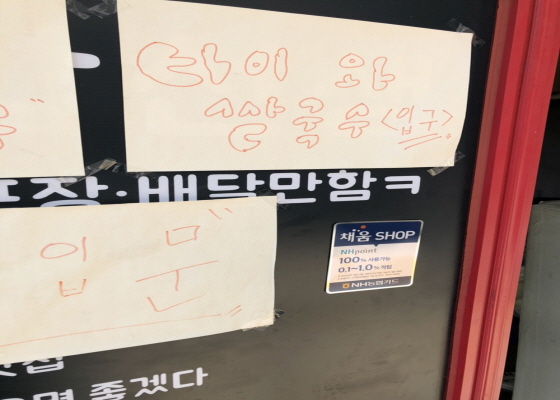 타이 와
쌀국수 <입구>
포장·배달만함ㅋ
입 문"
채움 SHOP
NHpoint
100% 사용가능
0.1~1.0% 적립
NH농협카드
좋겠다